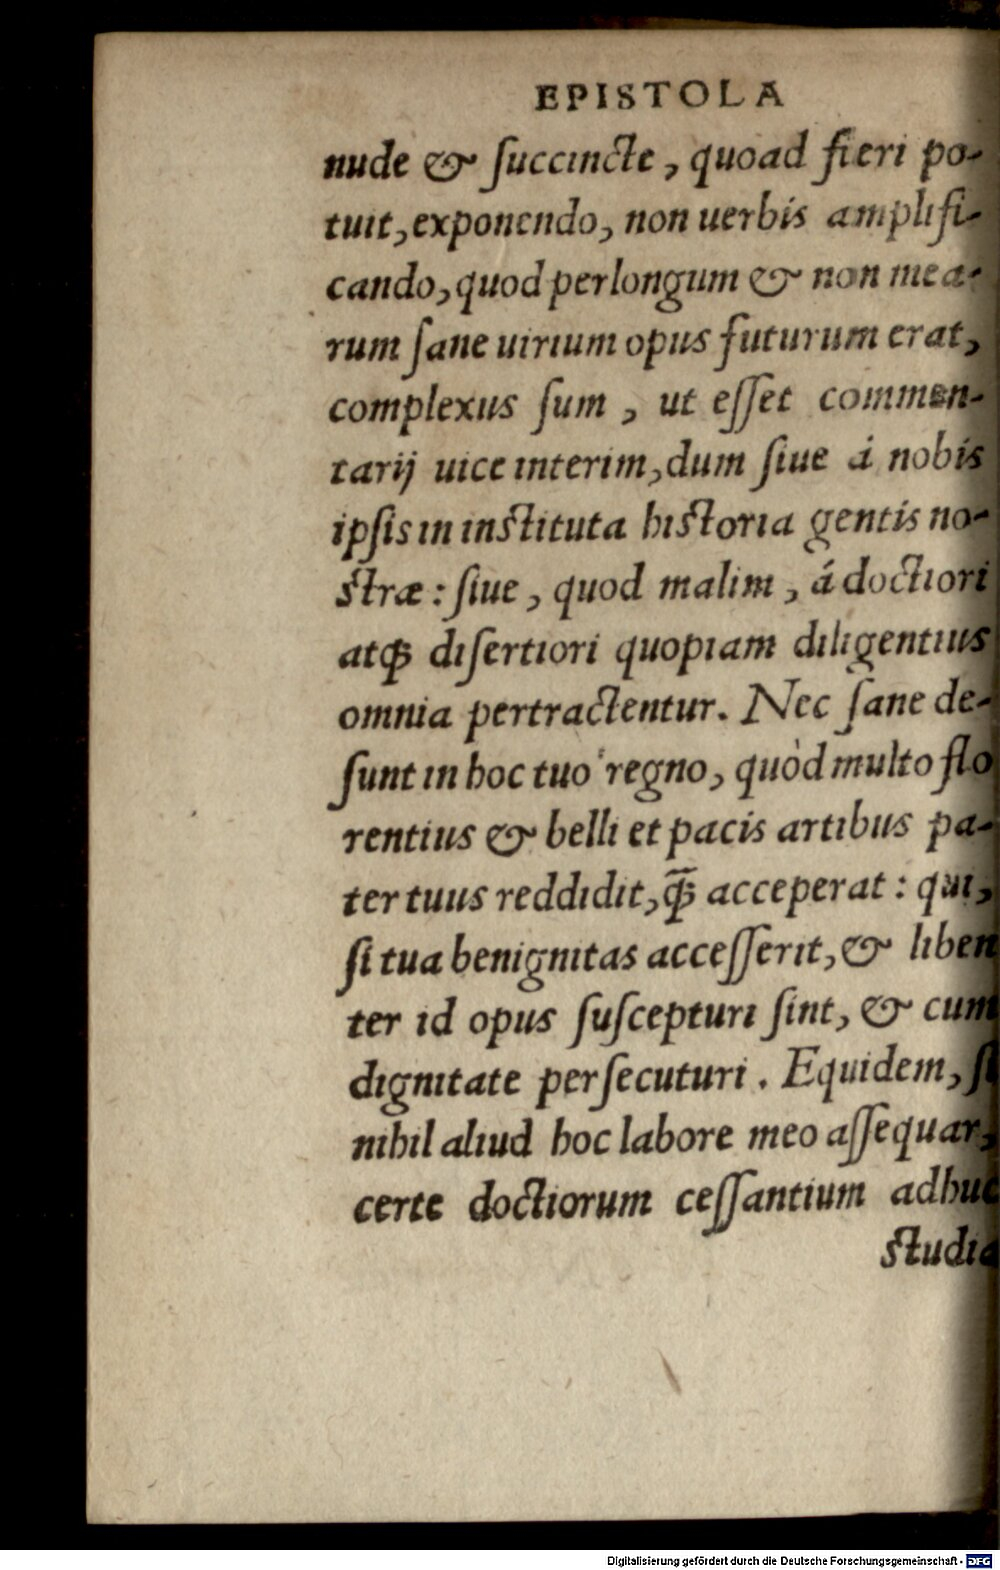 EPISTOLA
nude & ſuccincte, quoad fieri po-
tuit, exponendo, non uerbis amplifi-
cando, quod perlongum & non mea-
rum ſane uirium opus futurum erat,
complexus ſum, ut eſſet commen-
tarij uice interim, dum ſiue á nobis
ipſis in inſtituta hiſtoria gentis no-
ſtræ: ſiue, quod malim, á doctiori
atqꝫ diſertiori quopiam diligentius
omnia pertractentur. Nec ſane de-
ſunt in hoc tuo regno, quòd multo flo
rentius & belli et pacis artibus pa-
ter tuus reddidit, q̄ꝫ acceperat: qui,
ſi tua benignitas acceſſerit, & liben
ter id opus ſuſcepturi ſint, & cum
dignitate perſecuturi. Equidem, ſi
nihil aliud hoc labore meo aſſequar,
certe doctiorum ceſſantium adhuc
ſtudia
Digitalisierung gefördert durch die Deutsche Forschungsgemeinschaft - DFG